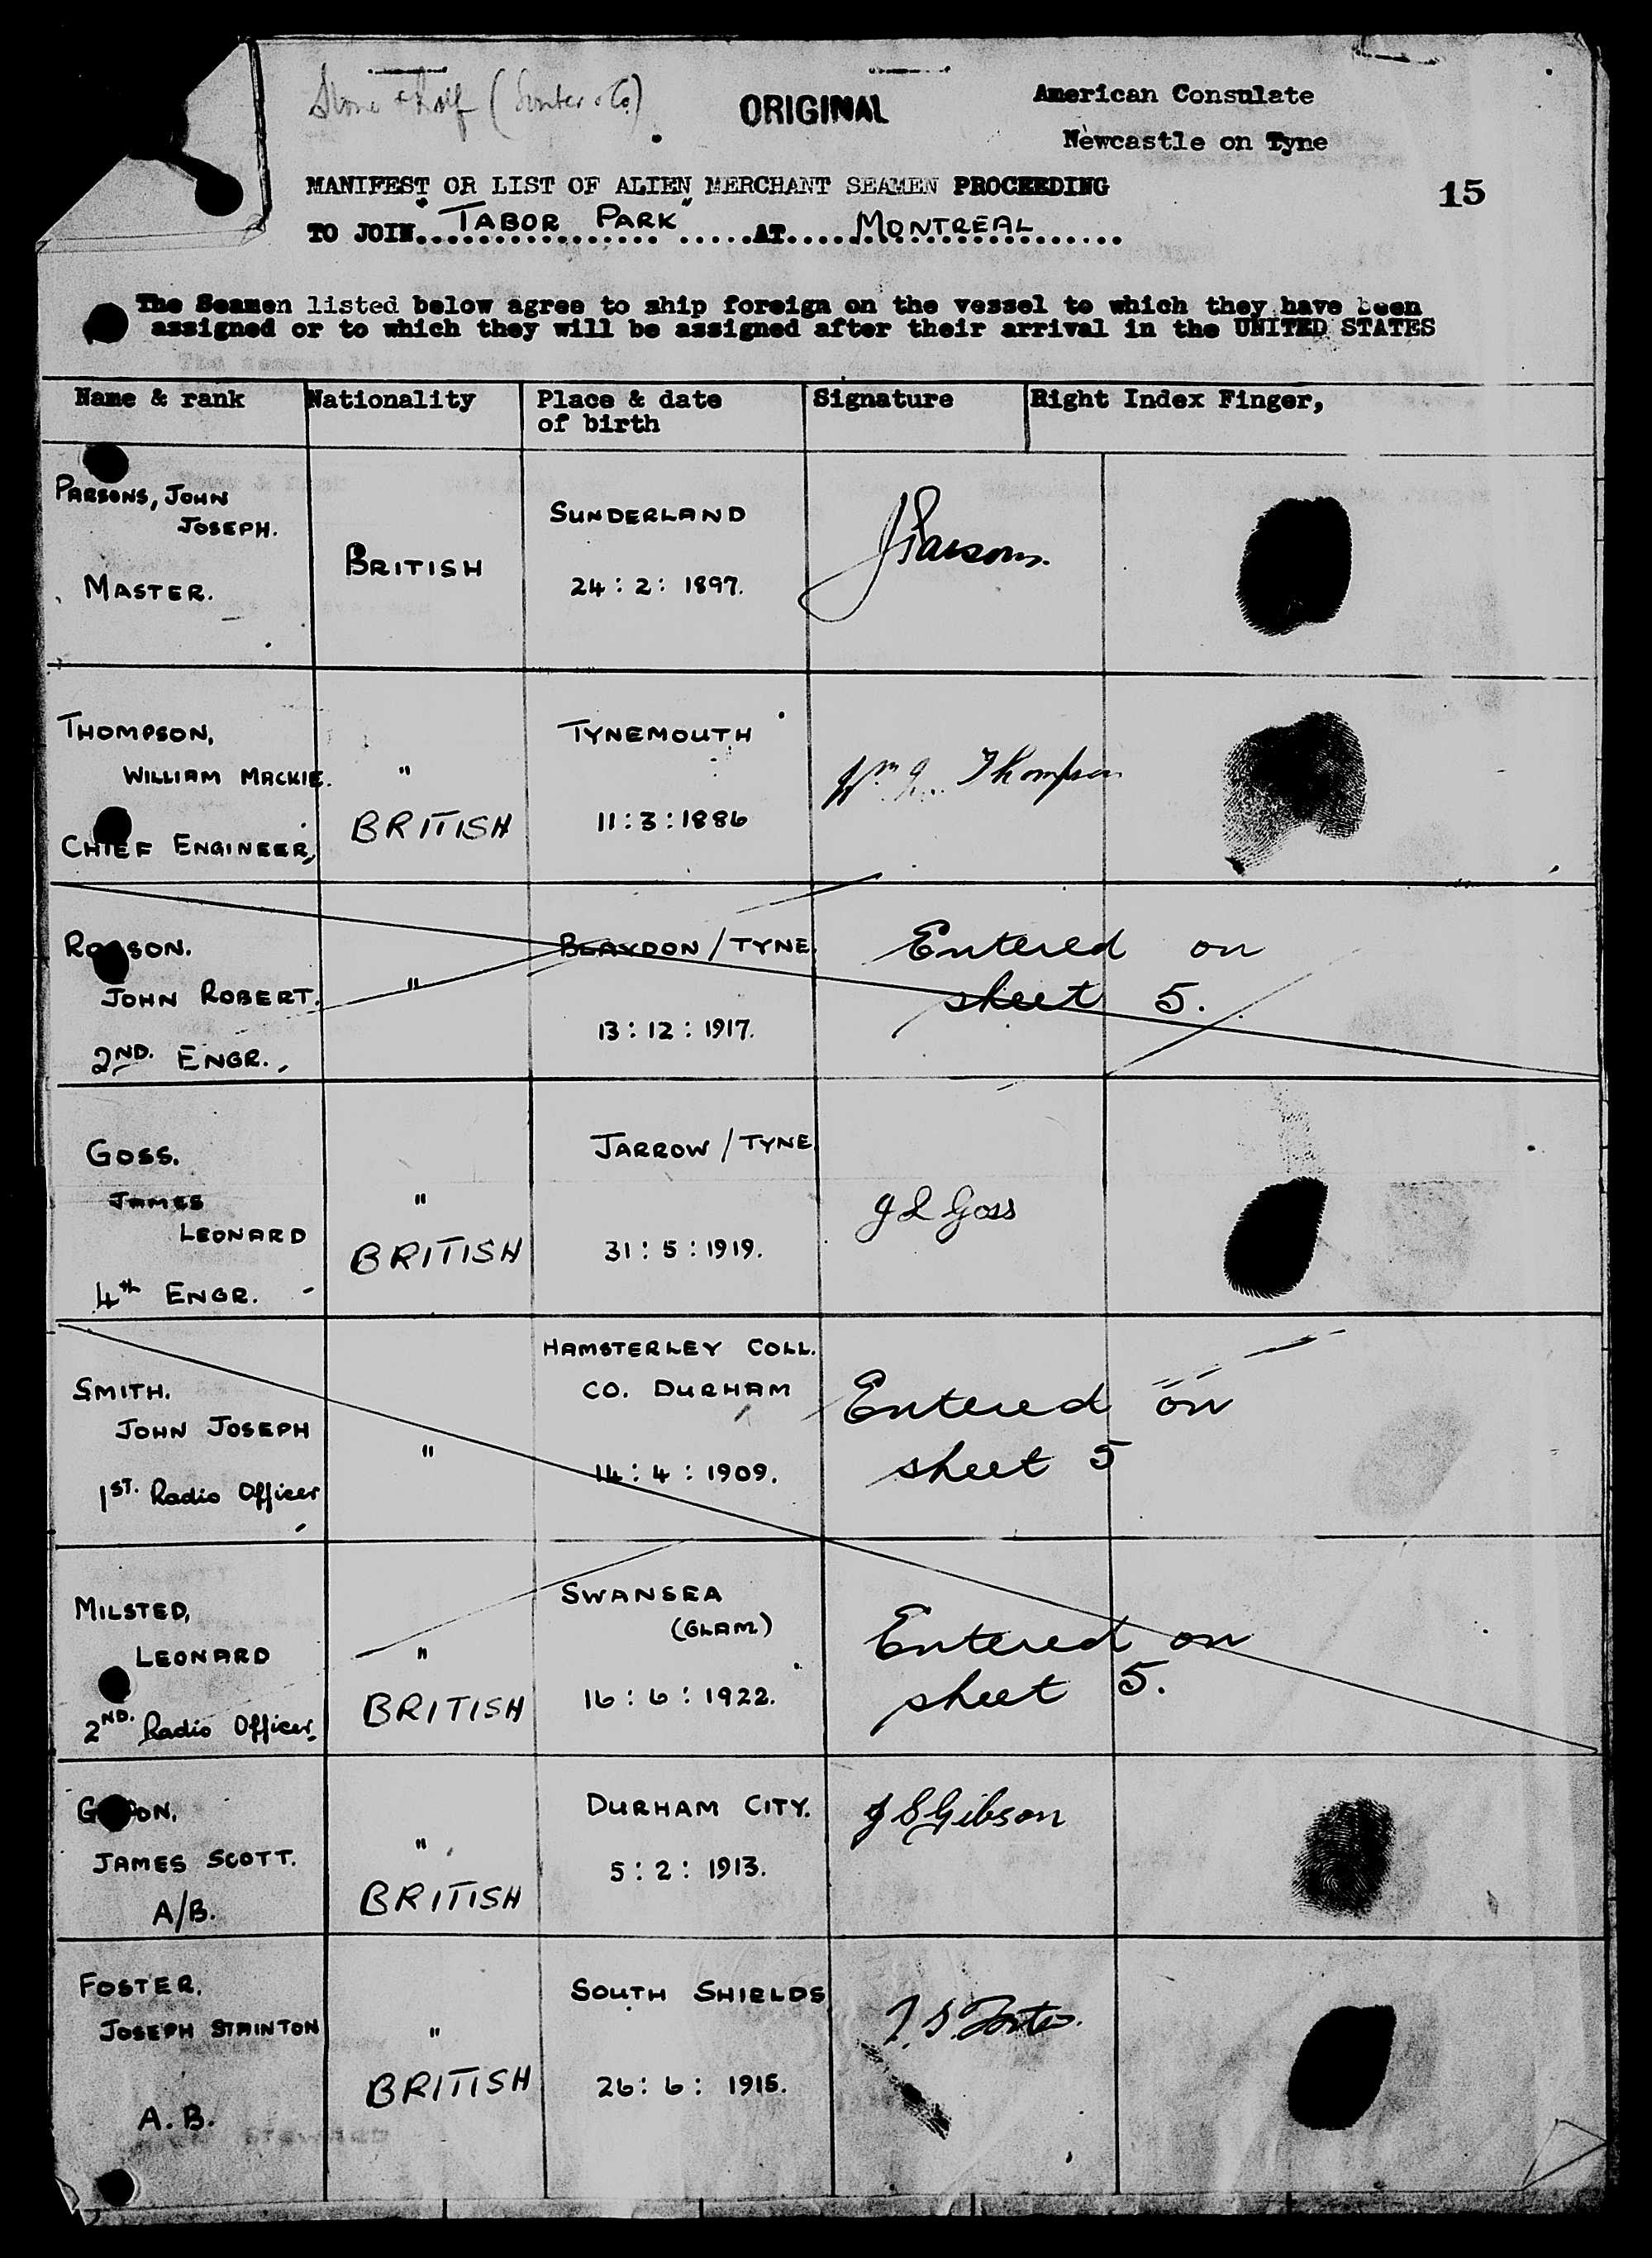 ORIGINAL
American Consulate
Newcastle on Tyne
15
MANIFEST OR LIST OF ALIEN MERCHANT SEAMEN PROCEEDING
TO JOIN "TABOR PARK" AT MONTREAL
The Seamen listed below agree to ship foreign on the vessel to which they have been
assigned or to which they will be assigned after their arrival in the UNITED STATES
Name & rank Nationality Place & date of birth Signature Right Index Finger,
PARSONS, JOHN
JOSEPH.
MASTER.
BRITISH
SUNDERLAND
24 : 2 : 1897.
J Parsons.
THOMPSON,
WILLIAM MACKIE.
CHIEF ENGINEER,
"
BRITISH
TYNEMOUTH
11 : 3 : 1886
Wm Thompson
JOHN ROBERT.
2ND. ENGR.,
"
BLAYDON / TYNE.
13 : 12 : 1917.
Entered on
sheet 5.
GOSS.
JAMES
LEONARD
4th ENGR.
"
BRITISH
JARROW / TYNE
31 : 5 : 1919.
J L Goss
SMITH.
JOHN JOSEPH
1ST. Radio Officer
"
HAMSTERLEY COLL.
CO. DURHAM
14 : 4 : 1909.
Entered on
sheet 5
MILSTED,
LEONARD
2ND. Radio Officer.
"
BRITISH
SWANSEA
(GLAM)
16 : 6 : 1922.
Entered on
sheet 5.
JAMES SCOTT.
A/B.
"
BRITISH
DURHAM CITY.
5 : 2 : 1913.
J S Gibson
FOSTER.
JOSEPH STAINTON
A.B.
"
BRITISH
SOUTH SHIELDS
26 : 6 : 1915.
J. S. Foster.